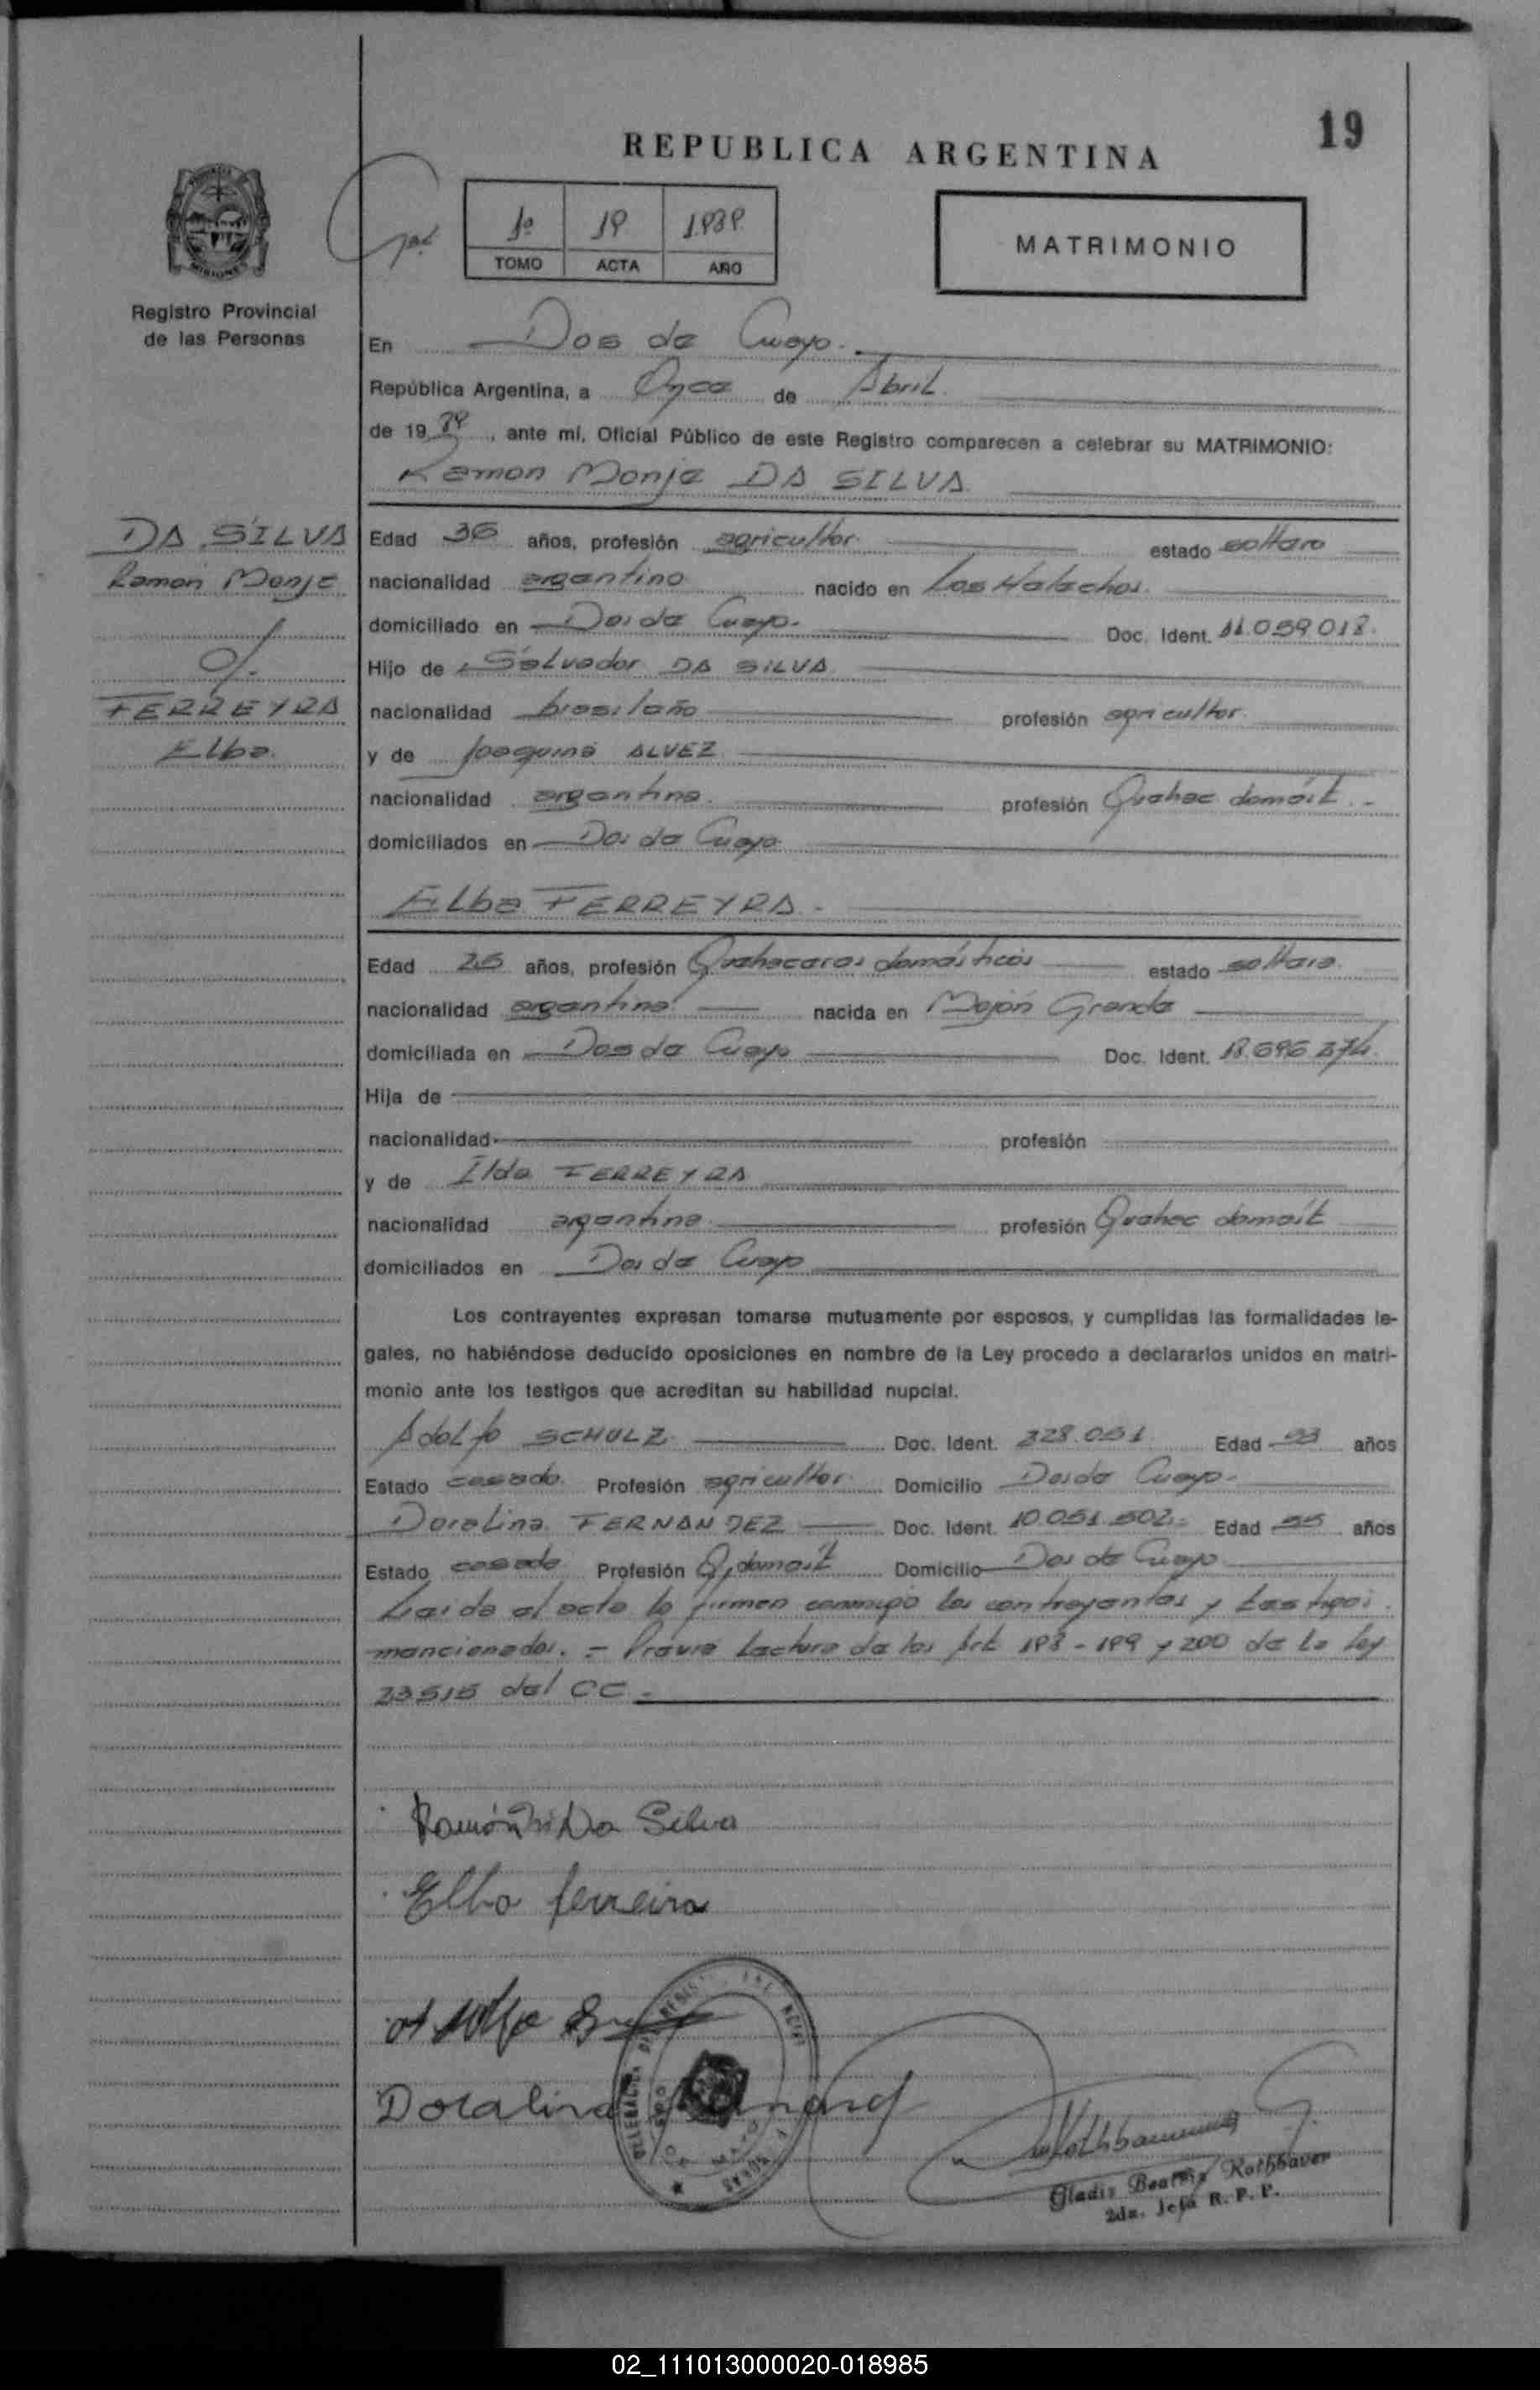 19
REPUBLICA ARGENTINA
1º 19 1989
TOMO ACTA AÑO
MATRIMONIO
MISIONES
Registro Provincial
de las Personas
En Dos de Mayo.
República Argentina, a Once de Abril
de 19 89, ante mí, Oficial Público de este Registro comparecen a celebrar su MATRIMONIO:
Ramon Monje DA SILVA
DA SILVA
Ramon Monje
FERREYRA
Elba.
Edad 36 años, profesión agricultor estado soltero
nacionalidad argentino nacido en Los Helechos.
domiciliado en Dos de Mayo. Doc. Ident. 11.059.018.
Hijo de Salvador DA SILVA
nacionalidad brasileño profesión agricultor.
y de Joaquina ALVEZ
nacionalidad argentina. profesión Quehac domést.
domiciliados en Dos de Mayo
Elba FERREYRA.
Edad 25 años, profesión Quehaceres domésticos estado soltera.
nacionalidad argentina nacida en Mojón Grande
domiciliada en Dos de Mayo Doc. Ident. 18.696.374.
Hija de
nacionalidad profesión
y de Ilda FERREYRA
nacionalidad argentina. profesión Quehac domést
domiciliados en Dos de Mayo
Los contrayentes expresan tomarse mutuamente por esposos, y cumplidas las formalidades le-
gales, no habiéndose deducido oposiciones en nombre de la Ley procedo a declararlos unidos en matri-
monio ante los testigos que acreditan su habilidad nupcial.
Adolfo SCHULZ Doc. Ident. 328.051 Edad años
Estado casado. Profesión agricultor. Domicilio Dos de Mayo.
Doralina FERNANDEZ Doc. Ident. 10.051.502. Edad 55 años
Estado casada Profesión Q. domést Domicilio Dos de Mayo
Leida el acta la firman conmigo los contrayentes y testigos
mencionados. - Previa lectura de los Art 198 - 199 y 200 de la Ley
23515 del CC.
Ramón Da Silva
Elba ferreira
Doralina
Gladis Beatriz Rothbauer
2da. Jefa R. P. P.
02_111013000020-018985